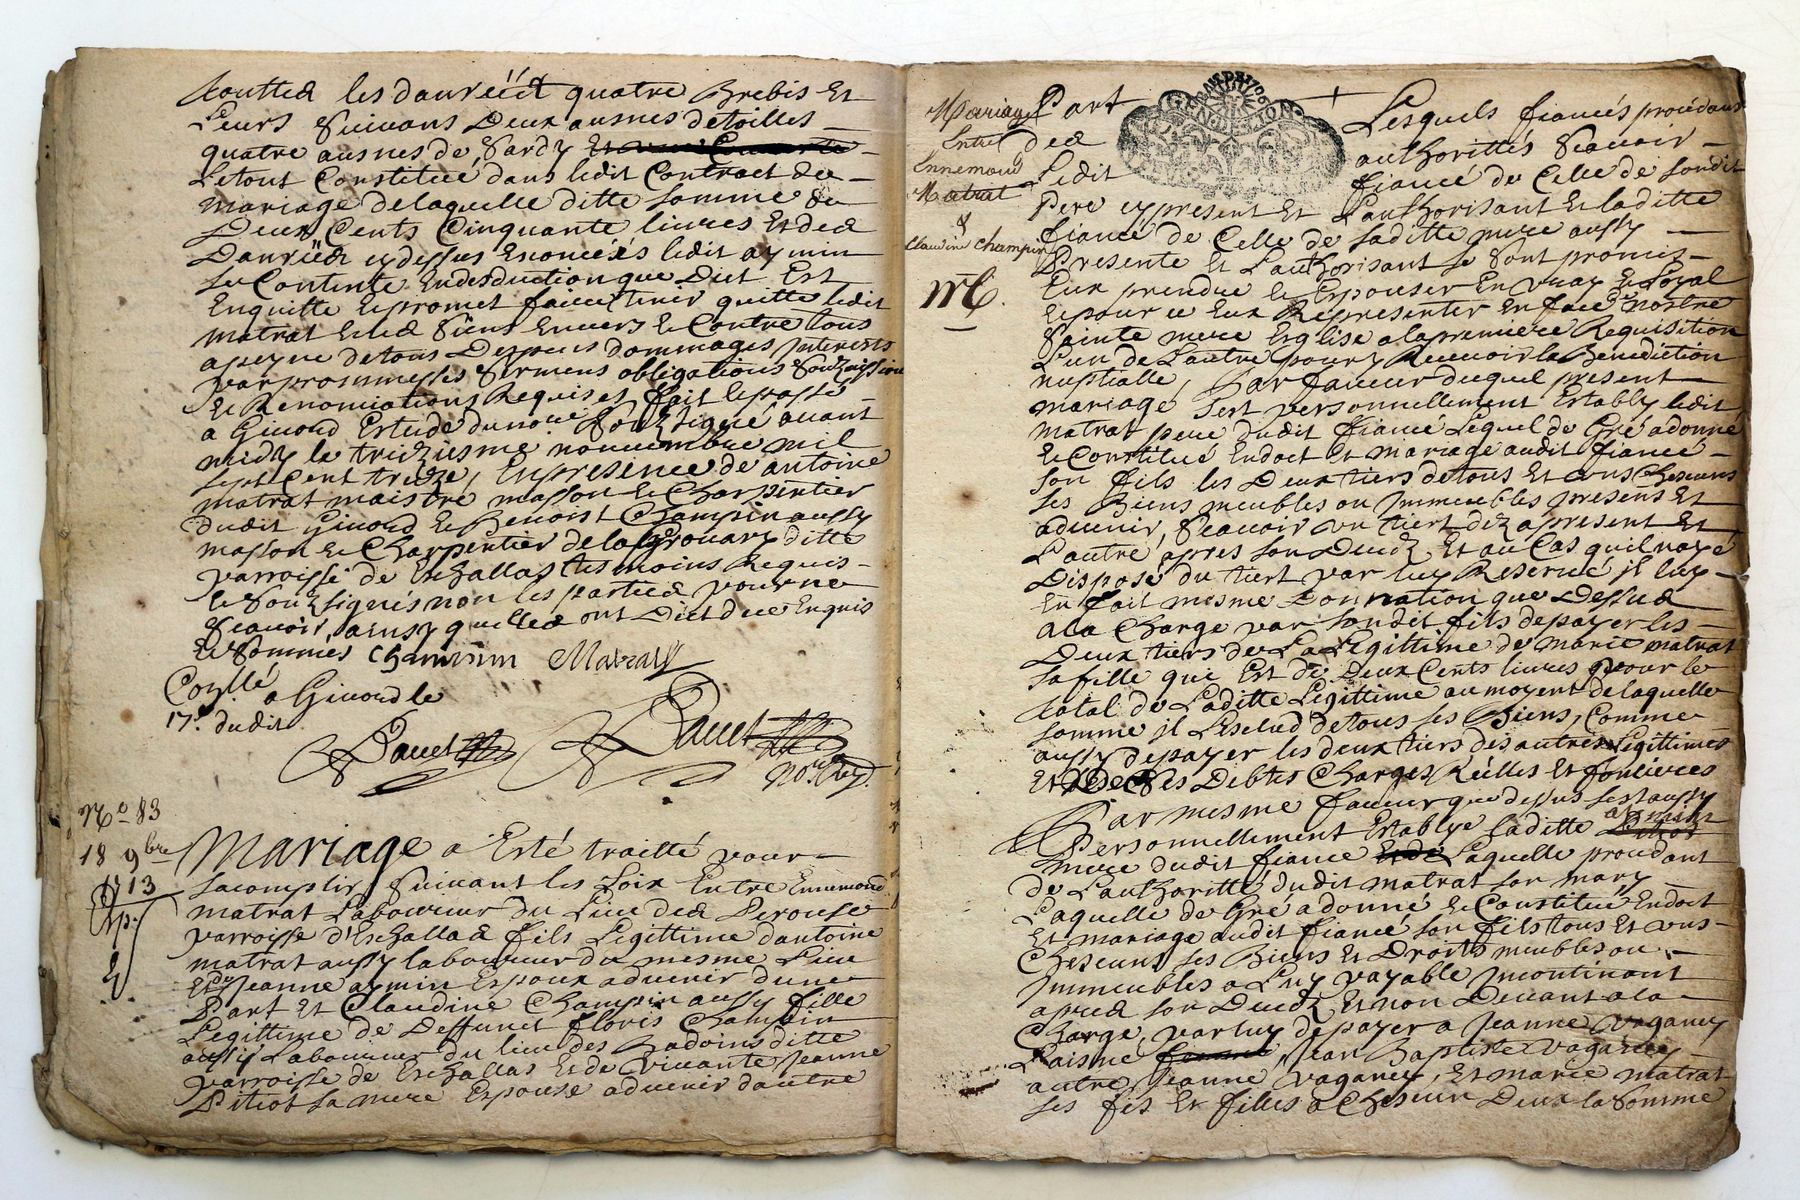 quatre Brebis Et
Leurs Suivans Deux ausnes de toilles
quatre ausnes de Sardy
Le tout Constitué dans ledit Contract de
mariage de laquelle ditte somme de
Deux Cents Cinquante livres Et des
Danrées cy dessus Enoncéés ledit aymin
se Contente En desduction que Dict Est
En quitte Et promet faire tenir quitte ledit
matrat Et les siens Envers Et Contre tous
a peyne de tous Despens dommages Interests
par promesses sermens obligations soubmissions
Et Renonciations Requises fait Et passé
a Givord Estude du no.re soubzsigné avant
midy le treiziesme novembre mil
sept Cent treize, En presence de antoine
matrat maistre masson Et Charpentier
dudit Givord Et Benoist Champin aussy
masson Et Charpentier de la ditte
parroisse de Eschallas tesmoins Requis
Et soubzsignés non les parties pour ne
scavoir, ainsy quelles ont Dict de ce Enquis
Et sommés Champin Matrat
a Givord le
17.e dudit
N.o 83
18 9bre
1713
Mariage a Esté traitté pour
Lacomplir Suivant les Loix Entre Ennemond
matrat Laboureur du Lieu des Perouse
parroisse d'Eschallas fils Legittime d'antoine
matrat aussy laboureur du mesme Lieu
Et de Jeanne aymin Espoux advenir d'une
Part Et Claudine Champin aussy fille
Legittime de Deffunct Floris Champin
aussy Laboureur du lieu des Badoins ditte
parroisse de Eschallas Et de vivante Jeanne
Pitiot sa mere Espouse advenir d'autre
Mariage
Entre
Ennemond
Matrat
&
Claudine Champin
Part Lesquels fiancés procedans
des authorittés scavoir
Ledit fiancé de Celle de sondit
Pere cy present Et L'authorisant Et laditte
fiancé de Celle de saditte mere aussy
Presente Et L'authorisant se sont promis
Eux prendre Et Espouser En vray Et Loyal
Et pour ce Eux Representer En face de nostre
Sainte mere Esglise a la premiere Requisition
L'un de L'autre pour y Recevoir la Benediction
nuptialle, Par faveur duquel present
mariage s'est personnellement Estably ledit
matrat pere dudit fiancé Lequel de Gré a donné
Et Constitué En doct Et mariage audit fiancé
son fils les Deux tiers de tous Et uns Chescuns
ses Biens meubles ou Immeubles presens Et
advenir, Scavoir un tiers dez a present Et
L'autre apres son Decedz, Et au Cas qu'il n'aye
Disposé du tiers par luy Reservé il luy
En fait mesme Donnation que Dessus
a la Charge par sondit fils de payer les
Deux tiers de La Legittime de Marie matrat
sa fille qui Est de Deux Cents livres pour le
total de Laditte Legittime au moyent de laquelle
somme il L'esclud de tous ses Biens, Comme
aussy de payer les deux tiers des autres Legittimes
Et de ses Debtes Charges Réelles Et foncieres
Par mesme faveur que dessus s'est aussy
Personnellement Establye laditte aymin
mere dudit fiancé Laquelle procedant
de L'authoritté dudit matrat son mary
Laquelle de Gré a donné Et Constitué En doct
Et mariage audit fiancé son fils tous Et uns
Chescuns ses Biens Et Droits meubles ou
Immeubles a Luy payable Incontinant
apres son Decedz, Et non Devant a la
Charge, par luy de payer a Jeanne Vaganey
L'aisnée Jean Baptiste Vaganey
autre Jeanne Vaganey, Et marie matrat
ses fils Et filles a Chescun Deux la somme